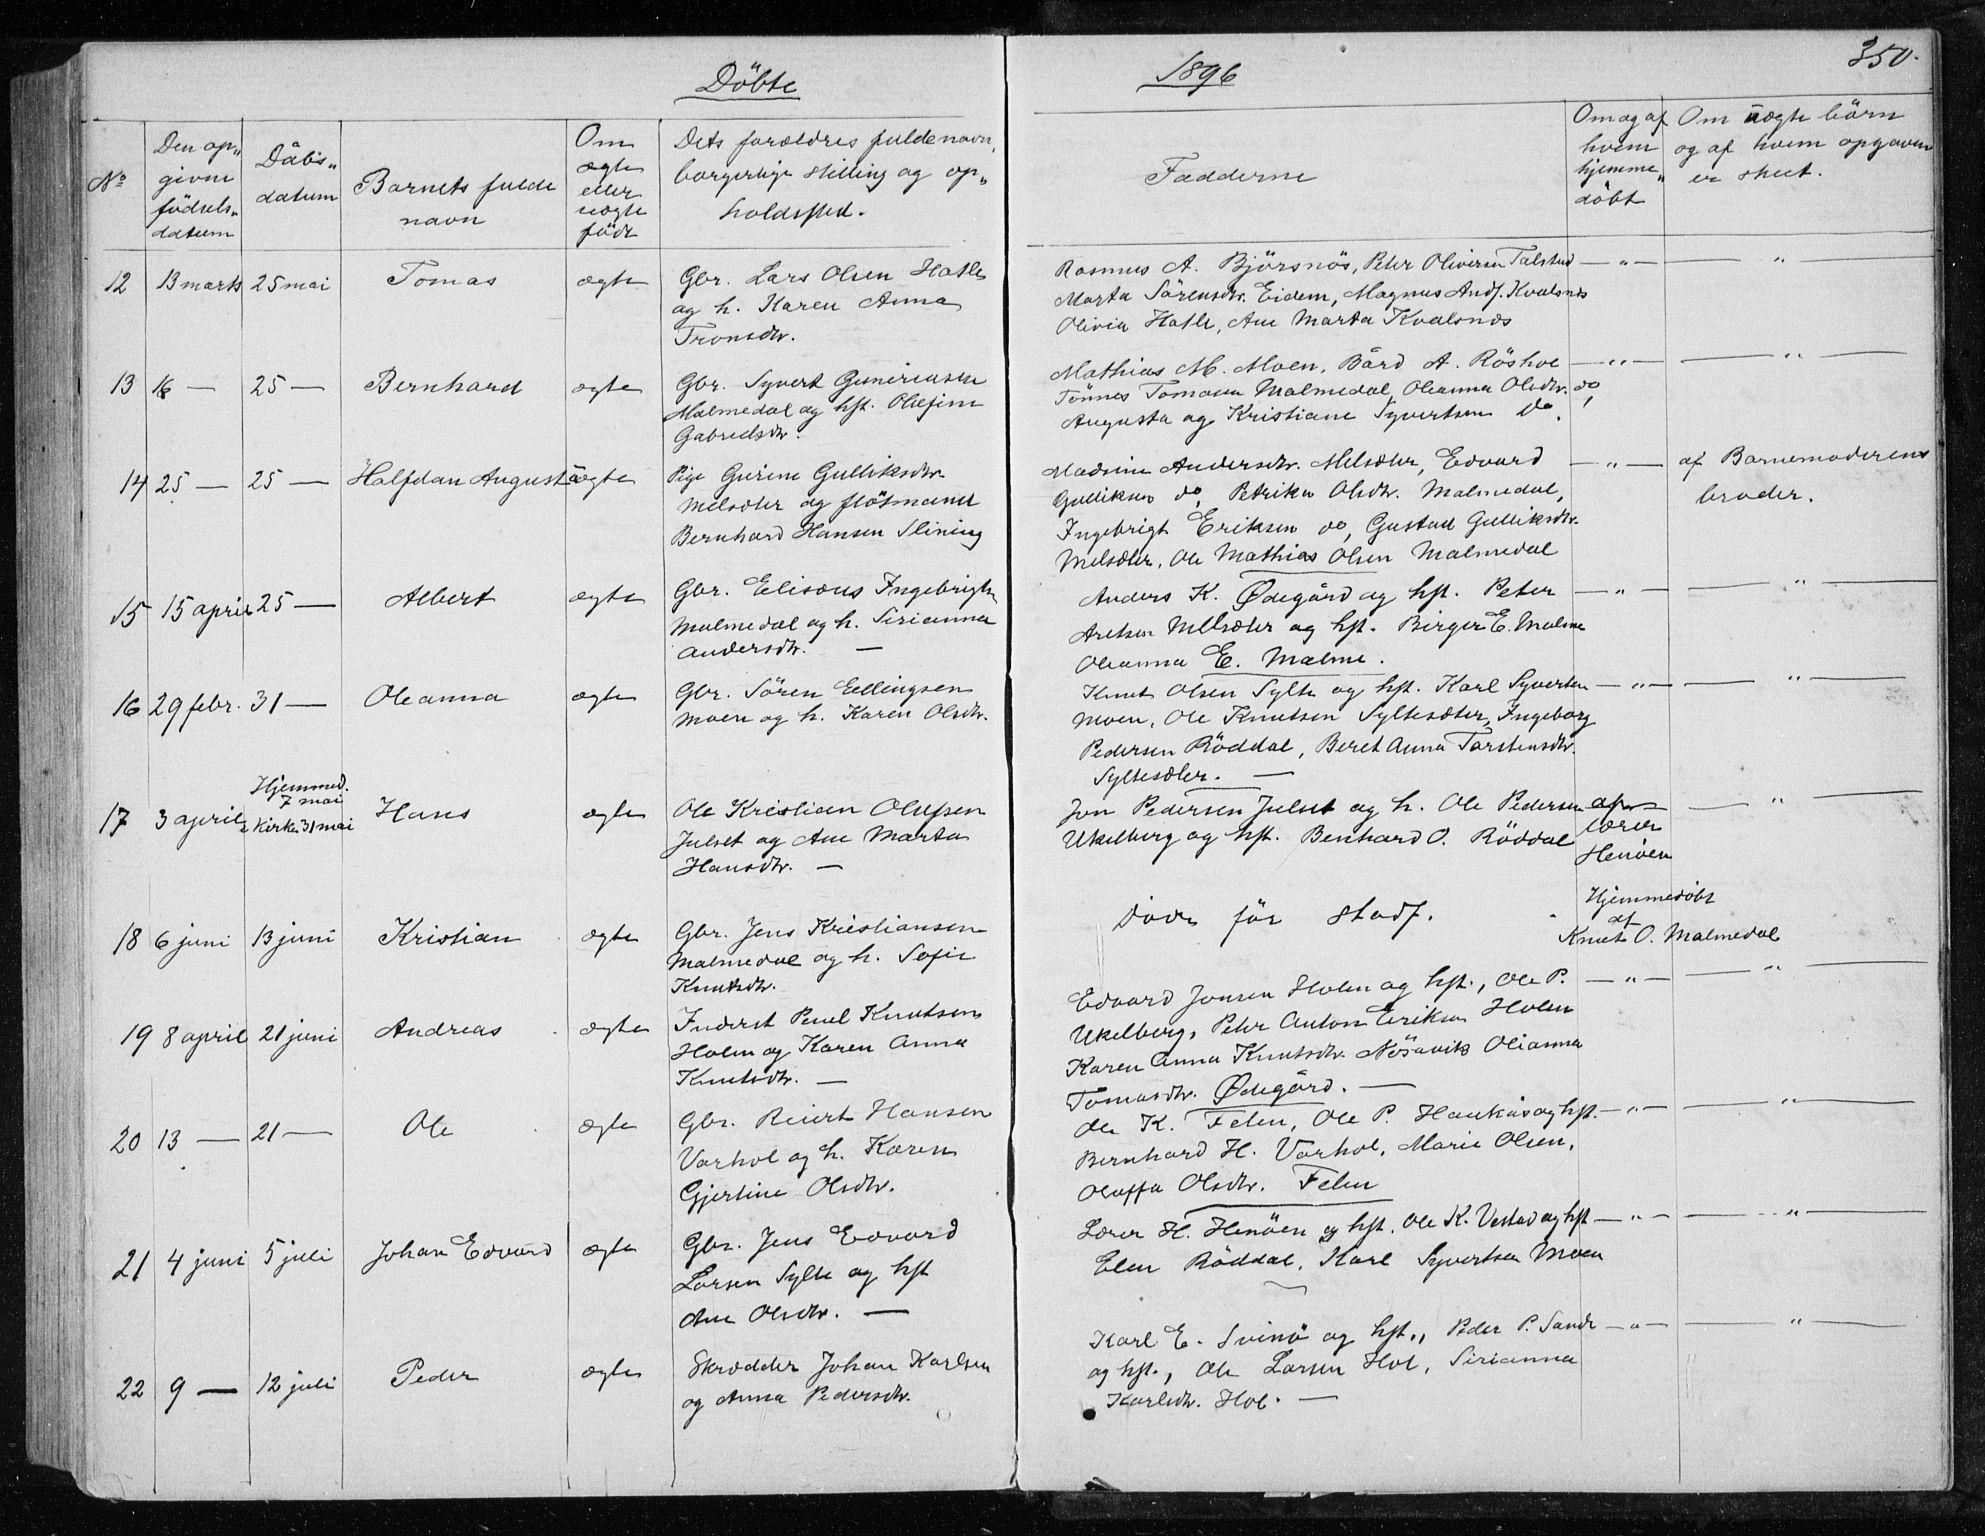 Döbte
1896
350.
No
Den op„
given
födsels„
datum
Dåbs„
datum
Barnets fulde
navn
Om
ægte
eller
uægte
född
Dets forældres fulde navn,
borgerlige stilling og op„
holdssted.
Fadderne
Om og af
hvem
hjemme„
döbt
Om uægte börn
og af hvem opgaven
er skeet.
12 13 marts 25 mai Tomas ægte
Gbr. Lars Olsen Hatle
og h. Karen Anna
Tronsdtr.
Rasmus A. Björsnös, Peter Oliversen Talstad — „ — — „ —
Marta Sörensdtr. Eidem, Magnus Andr. Kvalsnes
Olivia Hatle, Ane Marta Kvalsnes
13 16 — 25 — Bernhard ægte
Gbr. Syvert Guneriusen
Malmedal og hst. Olefine
Gabrielsdtr.
Mathias M. Moen, Bård A. Röshol — „ — — „ —
Tönnes Tomasen Malmedal, Oleanna Olsdtr. do,
Augusta og Kristiane Syvertsen do.
14 25 — 25 — Halfdan August uægte
Pige Gurine Gulliksdtr.
Melsæter og flötmand
Bernhard Hansen Slining
Madsine Andersdtr. Melsæter, Edvard — „ — af Barnemoderens
Gulliksen do, Petrika Olsdtr. Malmedal, broder.
Ingebrigt Eriksen do, Gustad Gulliksdtr.
Melsæter, Ole Mathias Olsen Malmedal
15 15 april 25 — Albert ægte
Gbr. Elisæus Ingebrigts.
Malmedal og h. Sirianna
Andersdtr. —
Anders K. Ødegård og hst. Peter — „ — — „ —
Aretsen Melsæter og hst. Birger E. Malme
Oleanna E. Malme.
16 29 febr. 31 — Oleanna ægte
Gbr. Sören Ellingsen
Moen og h. Karen Olsdtr.
Knut Olsen Sylte og hst. Karl Syvertsen — „ — — „ —
Moen, Ole Knutsen Syltesæter, Ingeborg
Pedersen Röddal, Beret Anna Torstensdtr.
Syltesæter. —
17 3 april Hjemmed.
7 mai
i Kirke 31 mai Hans ægte
Ole Kristian Olufsen
Julset og Ane Marta
Hansdtr. —
Jon Pedersen Julset og h. Ole Pedersen af — „ —
Ukelberg og hst. Benhard O. Röddal lærer
Henöen
18 6 juni 13 juni Kristian ægte
Gbr. Jens Kristiansen
Malmedal og h. Sofie
Knutsdtr.
Döde för stadf.
Hjemmedöbt
af
Knut O. Malmedal
19 8 april 21 juni Andreas ægte
Inderst Peul Knutsen
Holm og Karen Anna
Knutsdtr. —
Edvard Jonsen Holm og hst., Ole P. — „ — — „ —
Ukelberg, Peter Anton Eriksen Holen
Karen Anna Knutsdtr. Nösavik, Olianna
Tomasdtr. Ødegård. —
20 13 — 21 — Ole ægte
Gbr. Reiert Hansen
Varhol og h. Karen
Gjertine Olsdtr.
Ole K. Felen, Ole P. Haukås og hst — „ — — „ —
Bernhard H. Varhol, Marie Olsen,
Oluffa Olsdtr. Felen
21 4 juni 5 juli Johan Edvard ægte
Gbr. Jens Edvard
Larsen Sylte og hst
Ane Olsdtr. —
Lærer H. Henöen og hst. Ole K. Vestad og hst — „ — — „ —
Elen Röddal, Karl Syvertsen Moen
22 9 — 12 juli Peder ægte
Skrædder Johan Karlsen
og Anna Pedersdtr.
Karl E. Svinö og hst., Peder P. Sande — „ — — „ —
og hst., Ole Larsen Hol, Sirianna
Karlsdtr. Hol. —